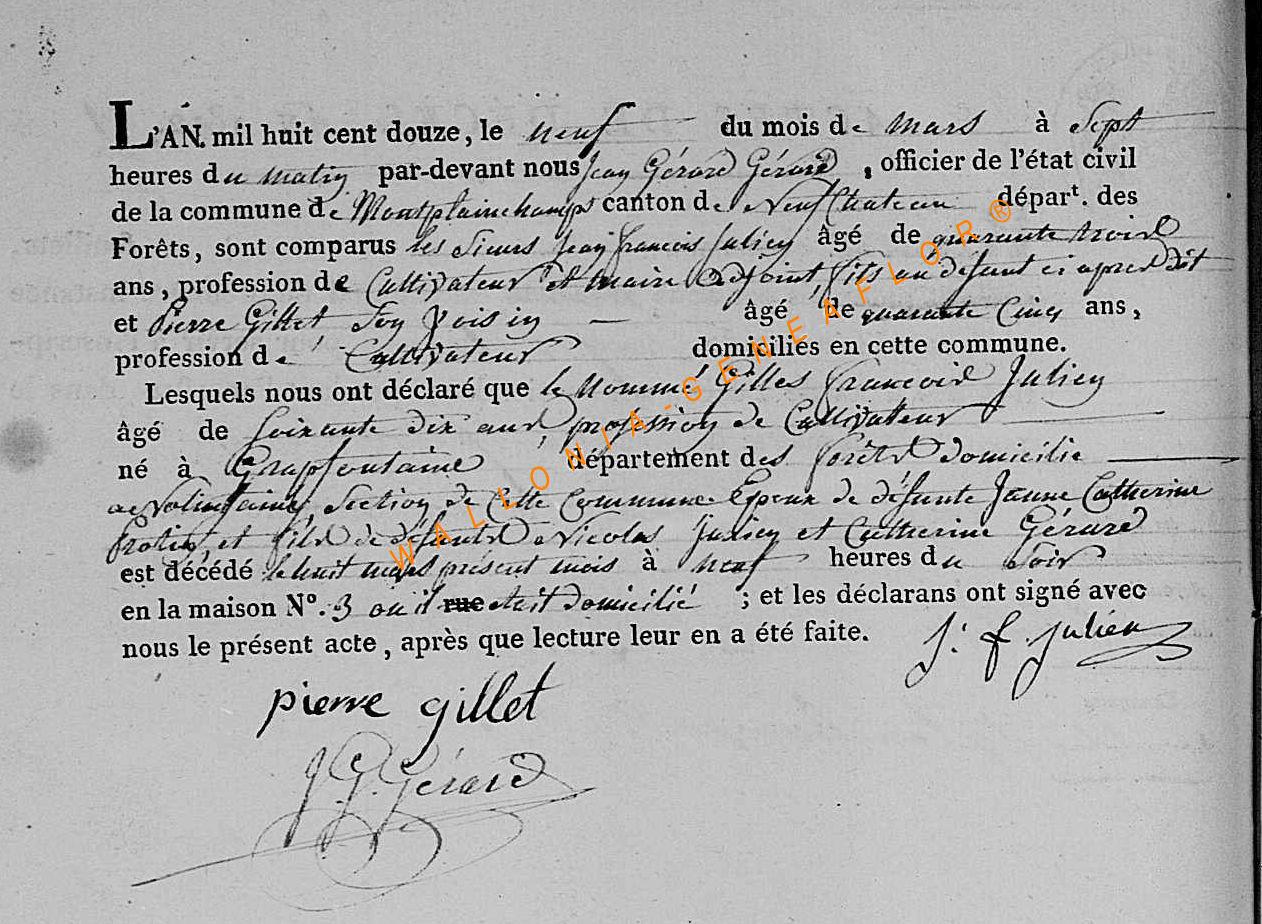 L'AN mil huit cent douze, le neuf du mois de mars à Sept
heures du matin par-devant nous Jean Gérard Gérard, officier de l'état civil
de la commune de Montplainchamps canton de Neufchateau départ. des
Forêts, sont comparus les Sieurs Jean françois Julien âgé de quarante trois
ans, profession de Cultivateur et maire adjoint, fils au défunt ci après dit
et Pierre Gillet Son Voisin — âgé de quarante Cinq ans,
profession de Cultivateur domiciliés en cette commune.
Lesquels nous ont déclaré que le Nommé Gilles françois Julien
âgé de Soixante dix ans, profession de Cultivateur
né à Grapfontaine département des forêts domicilié
a Volimfaing Section de Cette Commune Epoux de défunte Janne Catherine
et fils de défunts Nicolas Julien et Catherine Gérard
est décédé le huit mars présent mois à neuf heures du Soir
en la maison No. 3 ou il rue etait domicilié ; et les déclarans ont signé avec
nous le présent acte, après que lecture leur en a été faite. J. f. Julien
pierre gillet
J G Gérard
WALLONIA-GENEAFLOR®